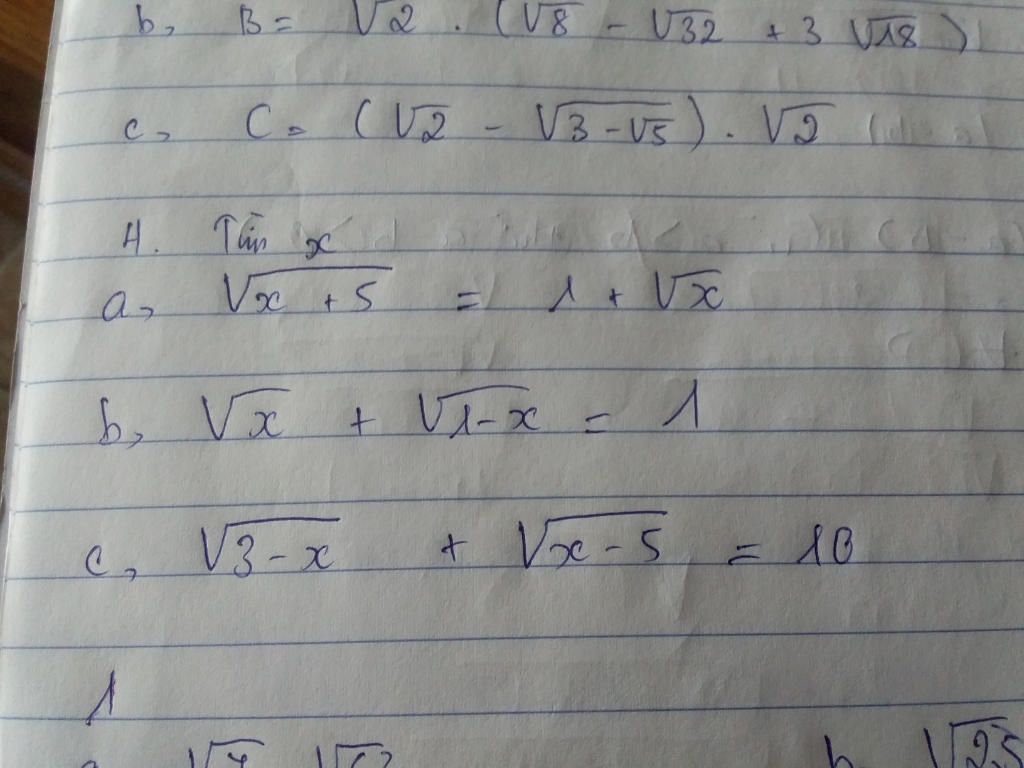 b, B = √2 . (√8 - √32 + 3 √18)
c, C = (√2 - √(3-√5)) . √2
4. Tìm x
a, √(x + 5) = 1 + √x
b, √x + √(1-x) = 1
c, √(3-x) + √(x-5) = 10
1